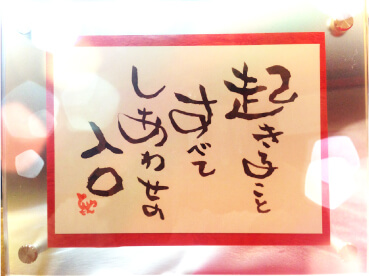 起きること
すべて
しあわせの
入口